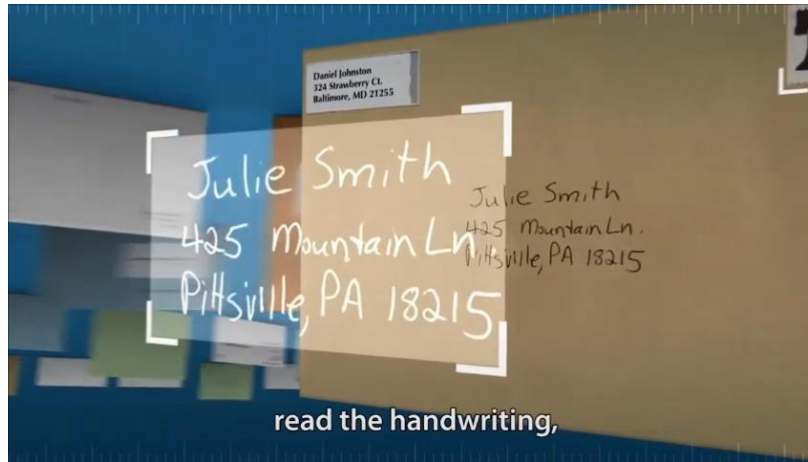 Daniel Johnston
324 Strawberry Ct.
Baltimore, MD 21255
Julie Smith
425 Mountain Ln.
Pittsville, PA 18215
Julie Smith
425 Mountain Ln.
Pittsville, PA 18215
read the handwriting,